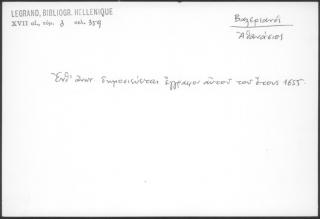 LEGRAND, BIBLIOGR. HELLENIQUE
XVII αἰ., τόμ. 3 σελ. 359
Βαλεριανός
Ἀθανάσιος
Ἔνθ' ἀνωτ. δημοσιεύεται ἔγγραφον αὐτοῦ τοῦ ἔτους 1655.